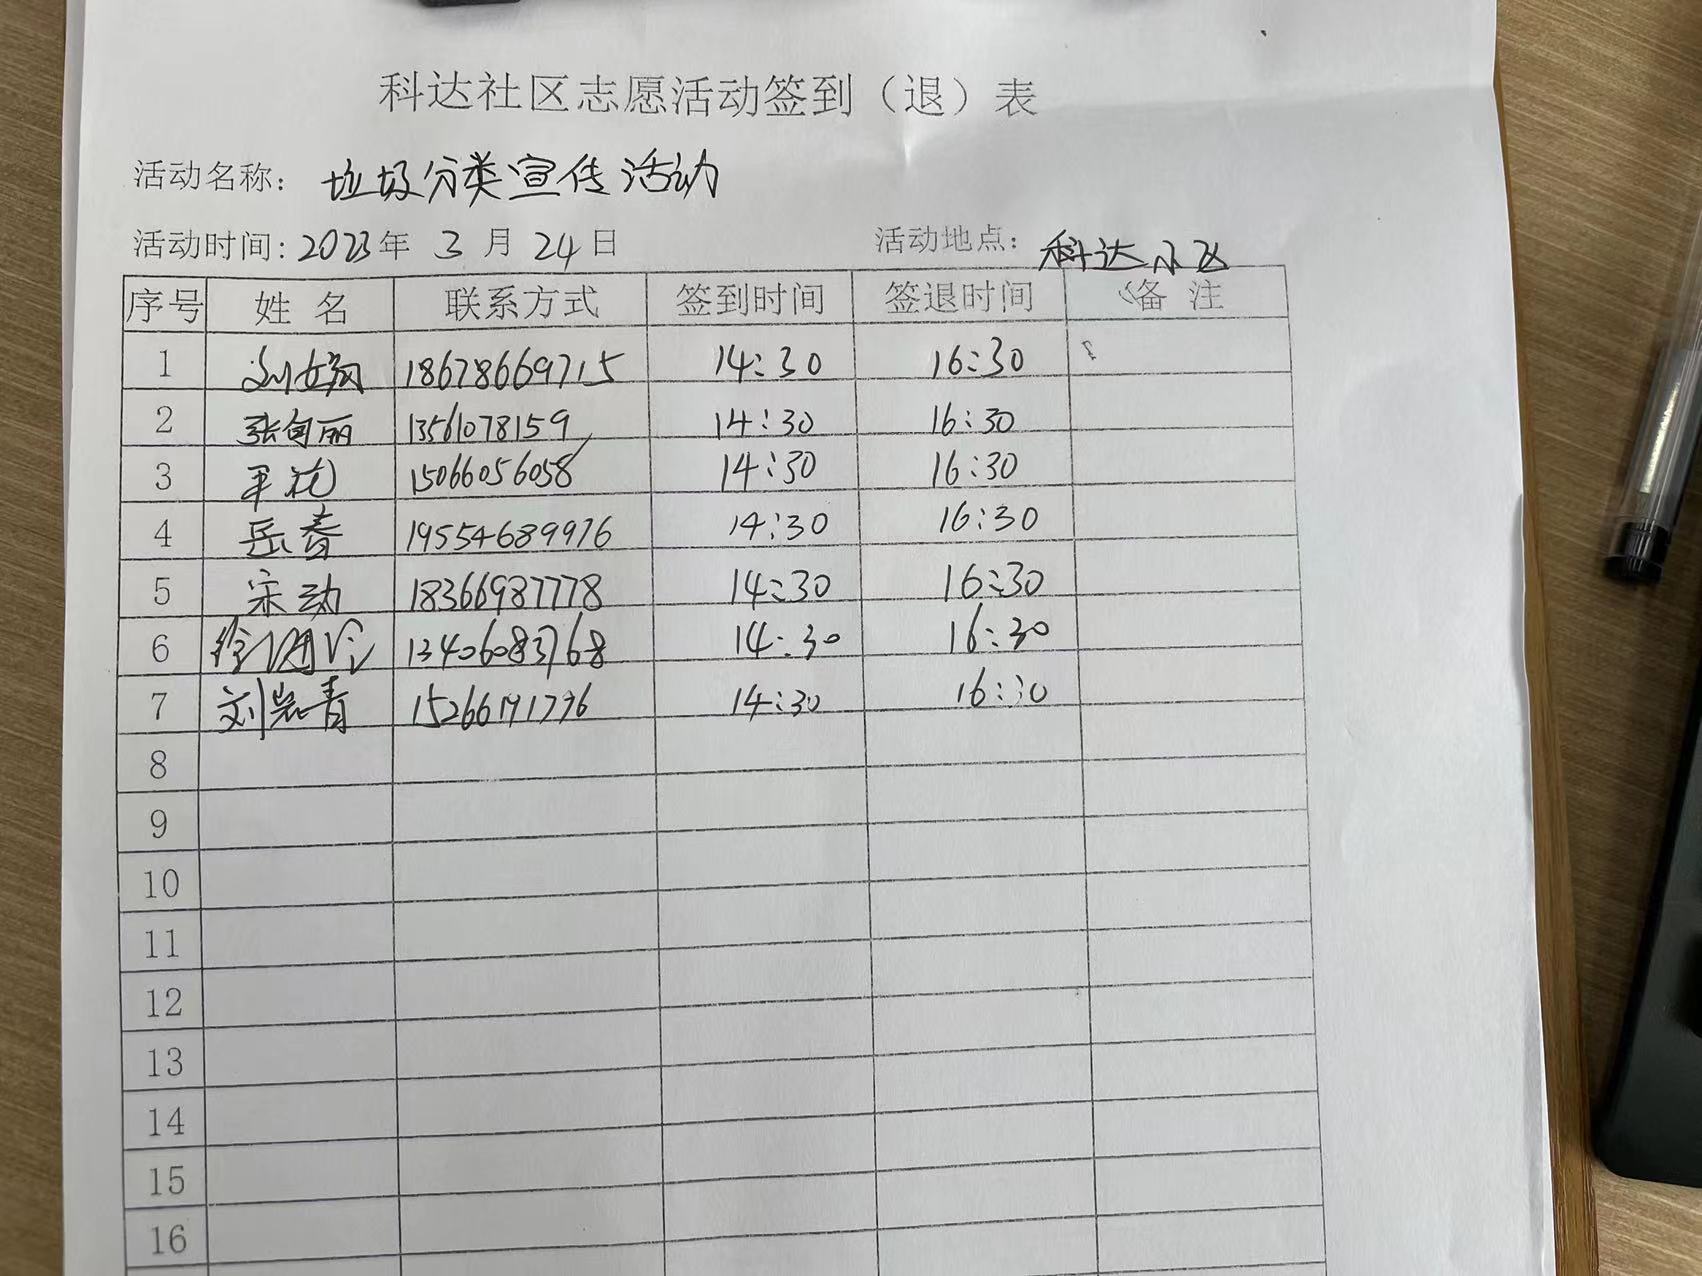 科达社区志愿活动签到（退）表
活动名称： 垃圾分类宣传活动
活动时间: 2023年 3月24日 活动地点： 科达小区
序号 姓 名 联系方式 签到时间 签退时间 备 注
1 刘 18678669715 14:30 16:30
2 张 丽 13561078159 14:30 16:30
3 平花 15066056058 14:30 16:30
4 岳春 19554689976 14:30 16:30
5 宋动 18366987778 14:30 16:30
6 徐 13406083768 14:30 16:30
7 刘 青 14:30 16:30
8
9
10
11
12
13
14
15
16